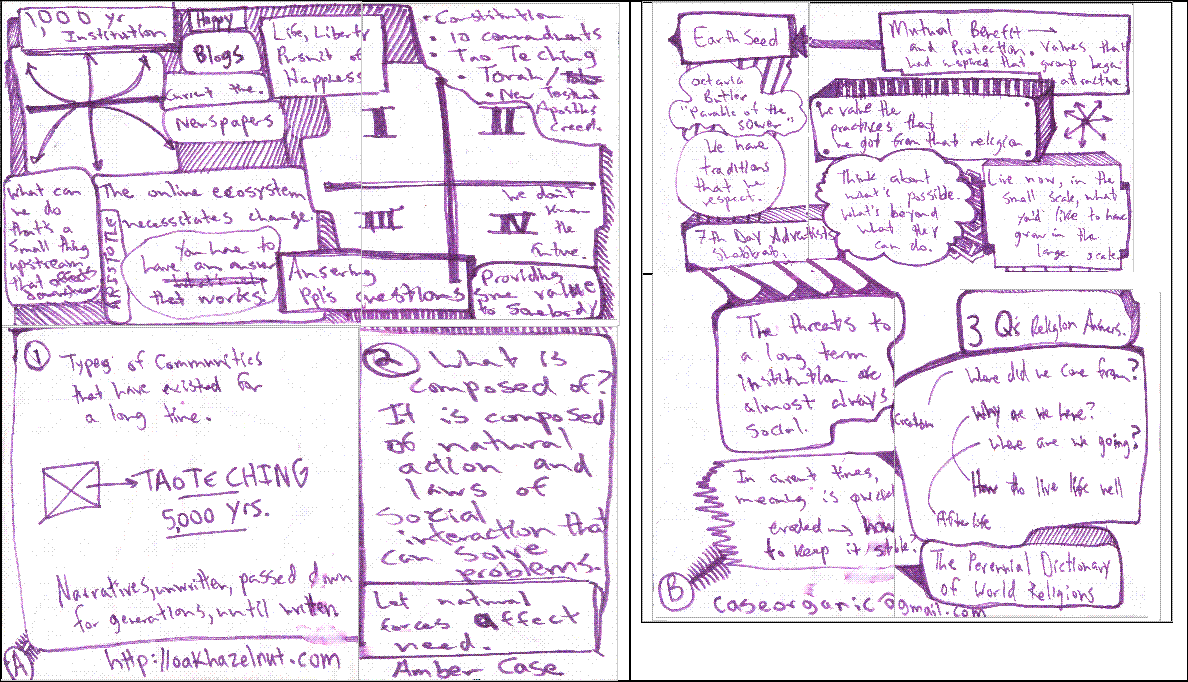 1,000 yr
Institution
Happy
Blogs
Current the.
Newspapers
Life, Liberty
Pursuit of
Happiness
• Constitution
• 10 commandments
• Tao Te Ching
• Torah/
• New Testament
Apostles
Creed.
I
II
III
IV
We don't
know
the
future.
What can
we do
that's a
small thing
upstream
that affects
downstream
ARISTOTLE
The online ecosystem
necessitates change.
You have to
have an answer
that works
Ansering
Ppl's questions
Providing
some value
to somebody
1
Types of Communities
that have existed for
a long time.
TAO TE CHING
5,000 yrs.
Narratives, unwritten, passed down
for generations, until written
A
http://oakhazelnut.com
2
What is
composed of?
It is composed
of natural
action and
laws of
social
interaction that
can solve
problems.
Let natural
forces affect
need.
Amber Case
EarthSeed
Mutual Benefit
and Protection. Values that
had inspired that group began
attractive
octavia
Butler
"Parable of the
sower"
We value the
practices that
we got from that religion
We have
traditions
that we
respect.
Think about
what's possible.
What's beyond
what they
can do.
Live now, in the
small scale, what
you'd like to have
grow in the
large scale.
7th Day Adventists
Shabbat.
The threats to
a long term
institution are
almost always
social.
3 Q's Religion Answers.
Where did we come from?
Creation
Why are we here?
Where are we going?
How to live life well
Afterlife
In current times,
meaning is quickly
eroded → how
to keep it stable?
The Perennial Dictionary
of World Religions
B
caseorganic@gmail.com